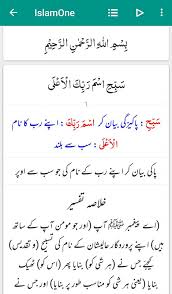 IslamOne
بِسْمِ اللهِ الرَّحْمٰنِ الرَّحِيْمِ
سَبِّحِ اسْمَ رَبِّكَ الْاَعْلَى
١
سَبِّحِ : پاکیزگی بیان کر اسْمَ رَبِّكَ : اپنے رب کا نام
الْاَعْلَى : سب سے بلند
پاکی بیان کر اپنے رب کے نام کی جو سب سے اوپر
خلاصہ تفسیر
(اے پیغمبر ﷺ) آپ (اور جو مومن آپ کے ساتھ
ہیں) اپنے پروردگار عالیشان کے نام کی تسبیح (و تقدیس)
کیجئے جس نے (ہر شی کو) بنایا پھر (اس کو) ٹھیک
بنایا (یعنی ہر شی کو مناسب طور پر بنایا) اور جس نے